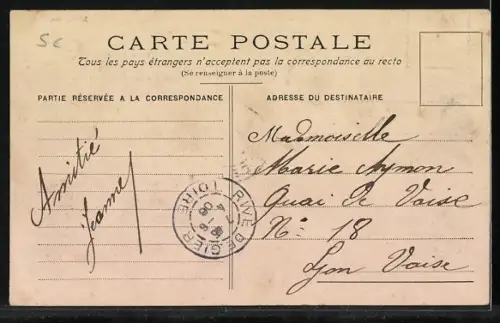 5c
CARTE POSTALE
Tous les pays étrangers n'acceptent pas la correspondance au recto
(Se renseigner à la poste)
PARTIE RÉSERVÉE A LA CORRESPONDANCE
ADRESSE DU DESTINATAIRE
Amitié
Jeanne
Mademoiselle
Marie Aymon
Quai De Vaise
No 18
Lyon Vaise
RIVE DE GIER LOIRE